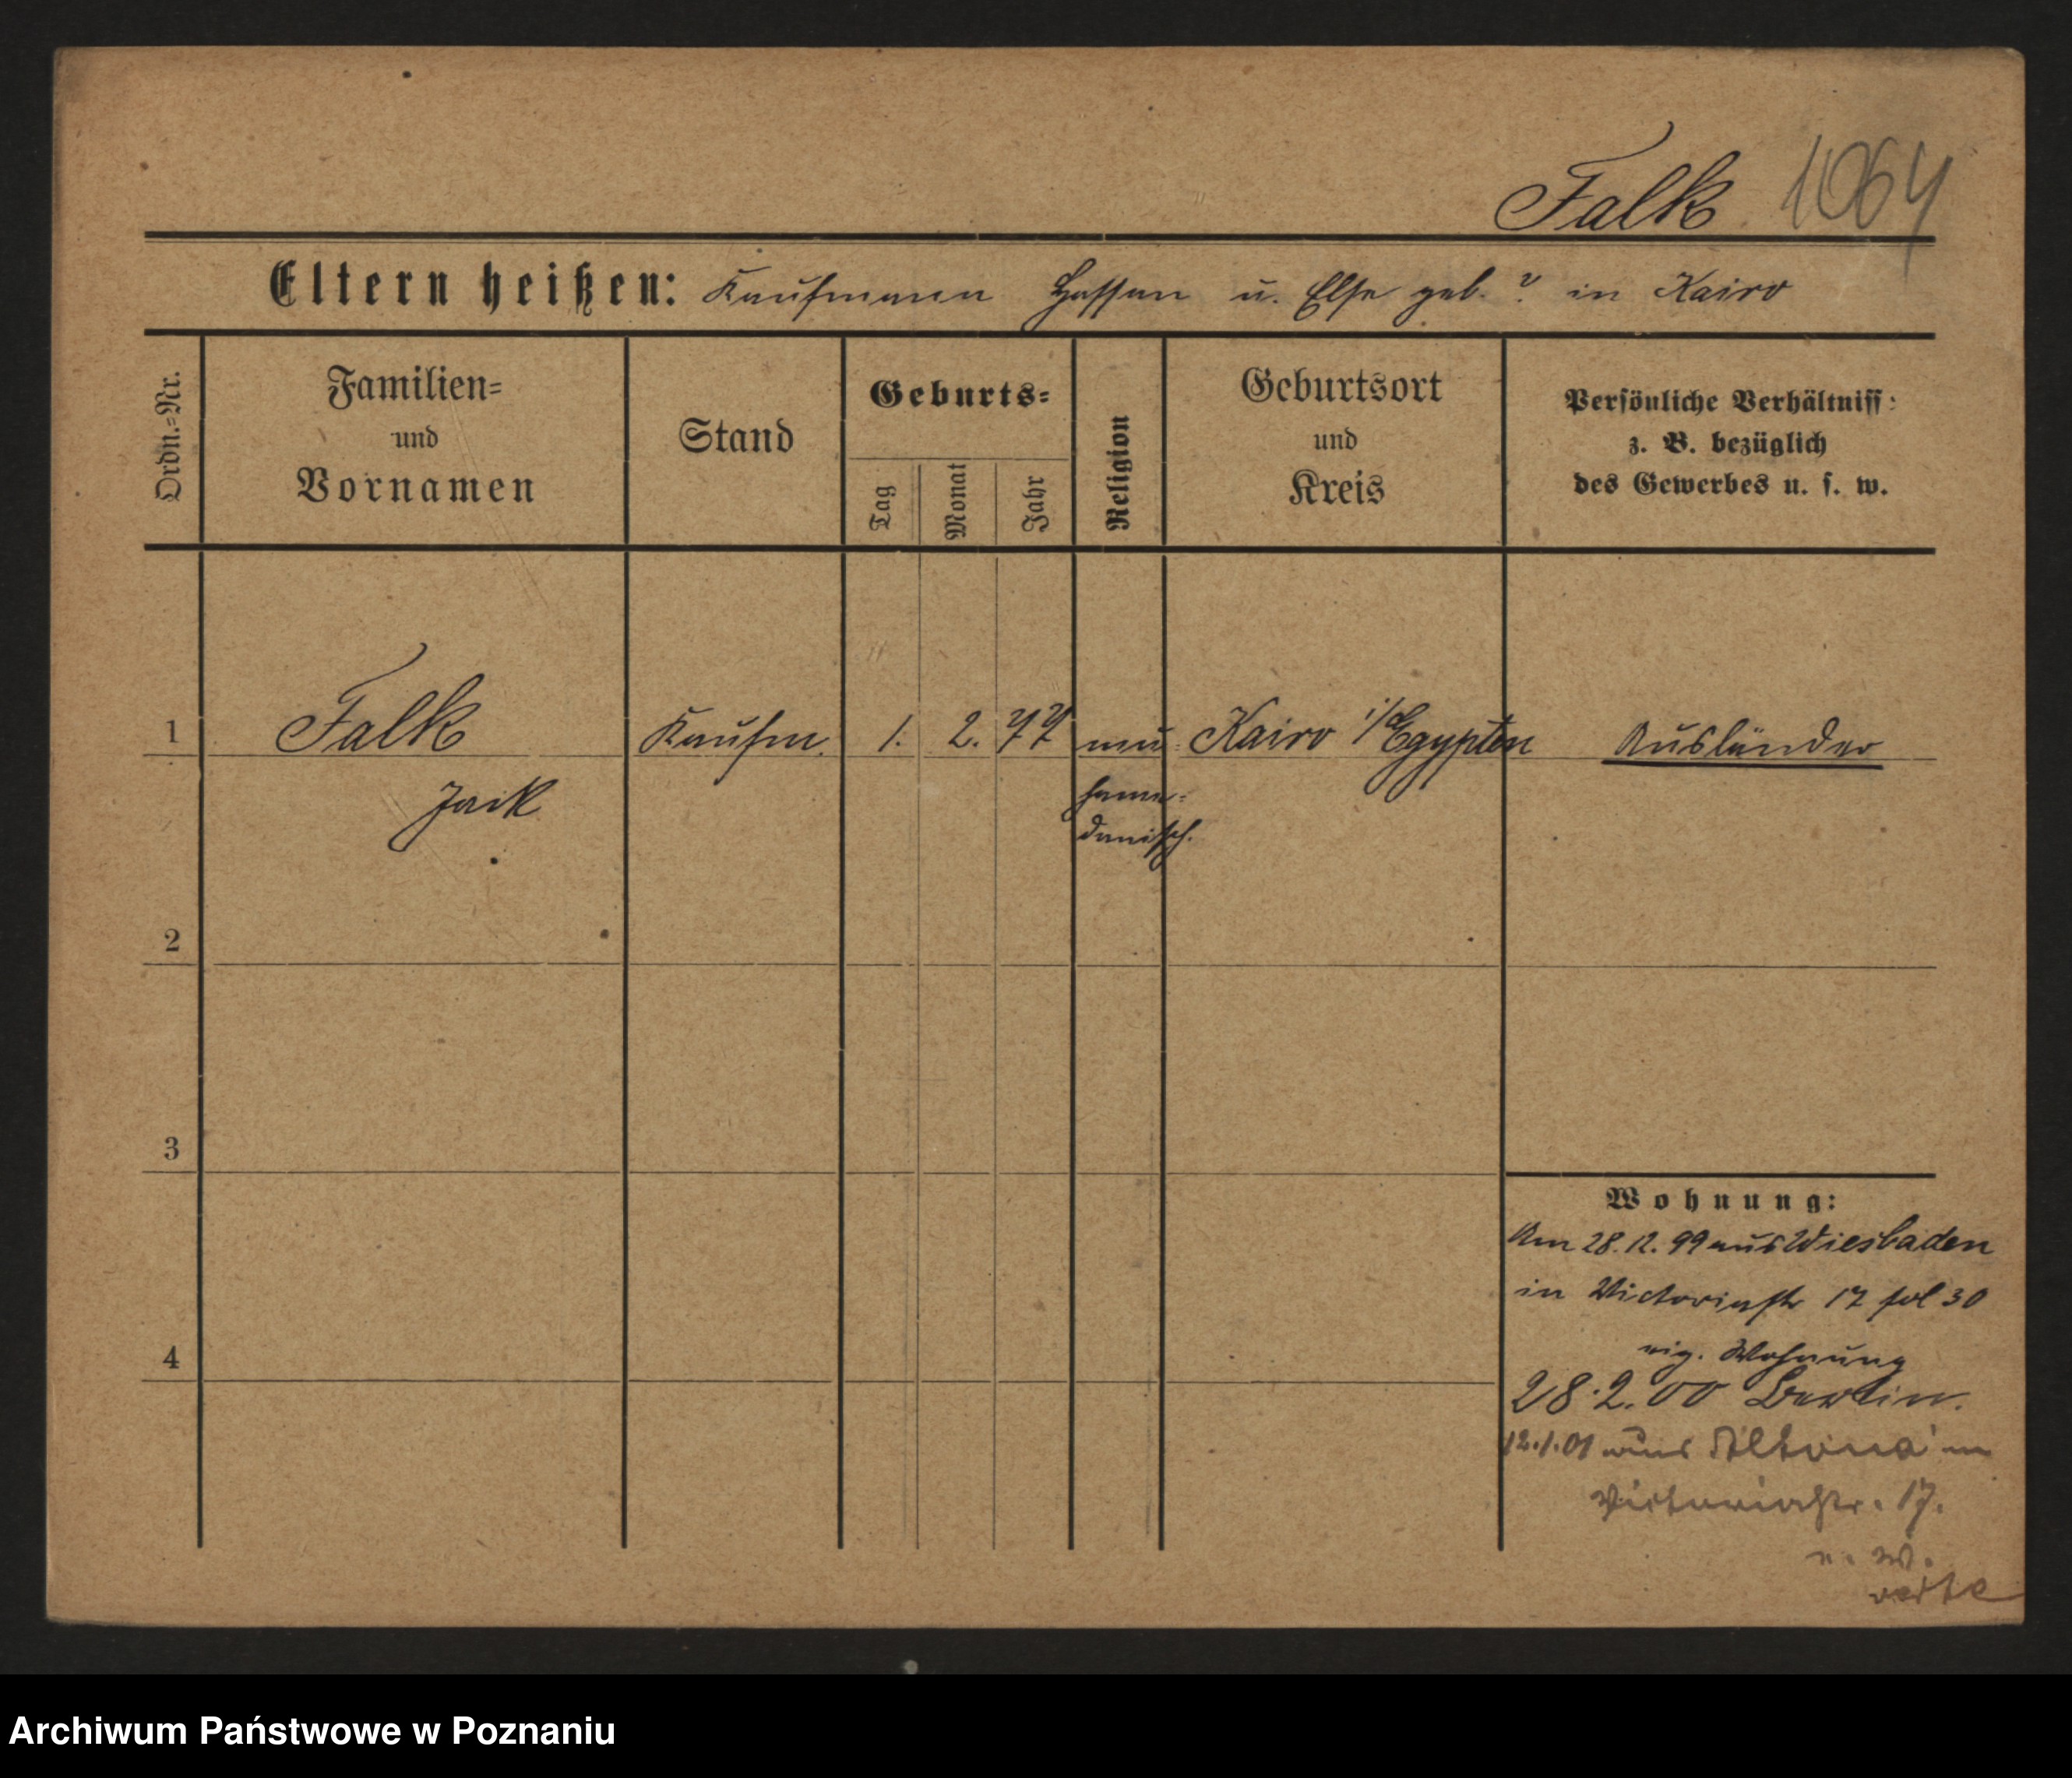 Falk 1064
Eltern heißen: Kaufmann Hassan u. Else geb. ? in Kairo
Ordn.=Nr.
Familien=
und
Vornamen
Stand
Geburts=
Tag
Monat
Jahr
Religion
Geburtsort
und
Kreis
Persönliche Verhältniss:
z. B. bezüglich
des Gewerbes u. s. w.
1 Falk Kaufm. 1. 2. 77 mu= Kairo i/Egypten Ausländer
Jack hame=
danisch.
2
3
Wohnung:
Am 28.12.99 aus Wiesbaden
in Victoriastr 17 fol 30
eig. Wohnung
4
28.2.00 Berlin.
12.1.01 aus Altona in
Victoriastr. 17.
e. W.
Archiwum Państwowe w Poznaniu